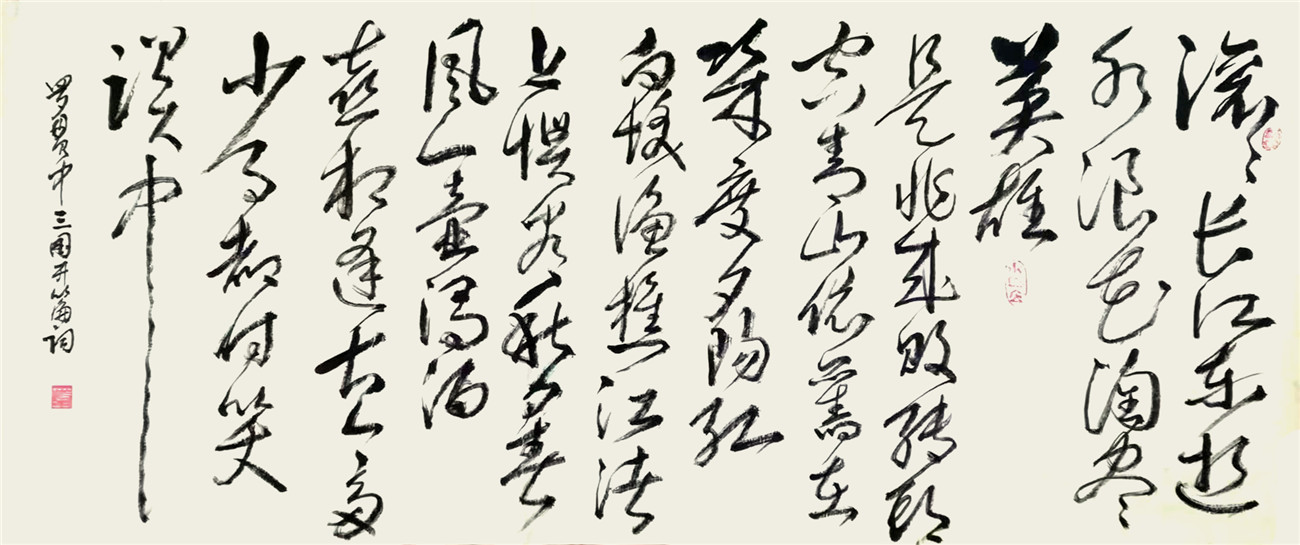 滚滚长江东逝
水浪花淘尽
英雄
是非成败转头
空青山依舊在
几度夕阳红
白发渔樵江渚
上惯看秋月春
風一壶浊酒
喜相逢古今多
少事都付笑
谈中
罗贯中三国开篇词